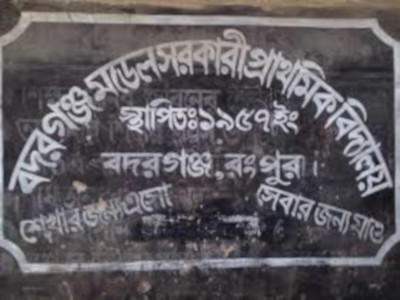 বদরগঞ্জ মডেল সরকারী প্রাথমিক বিদ্যালয়
স্থাপিতঃ ১৯৫৭ ইং
বদরগঞ্জ, রংপুর।
শেখার জন্য এসো
সেবার জন্য যাও